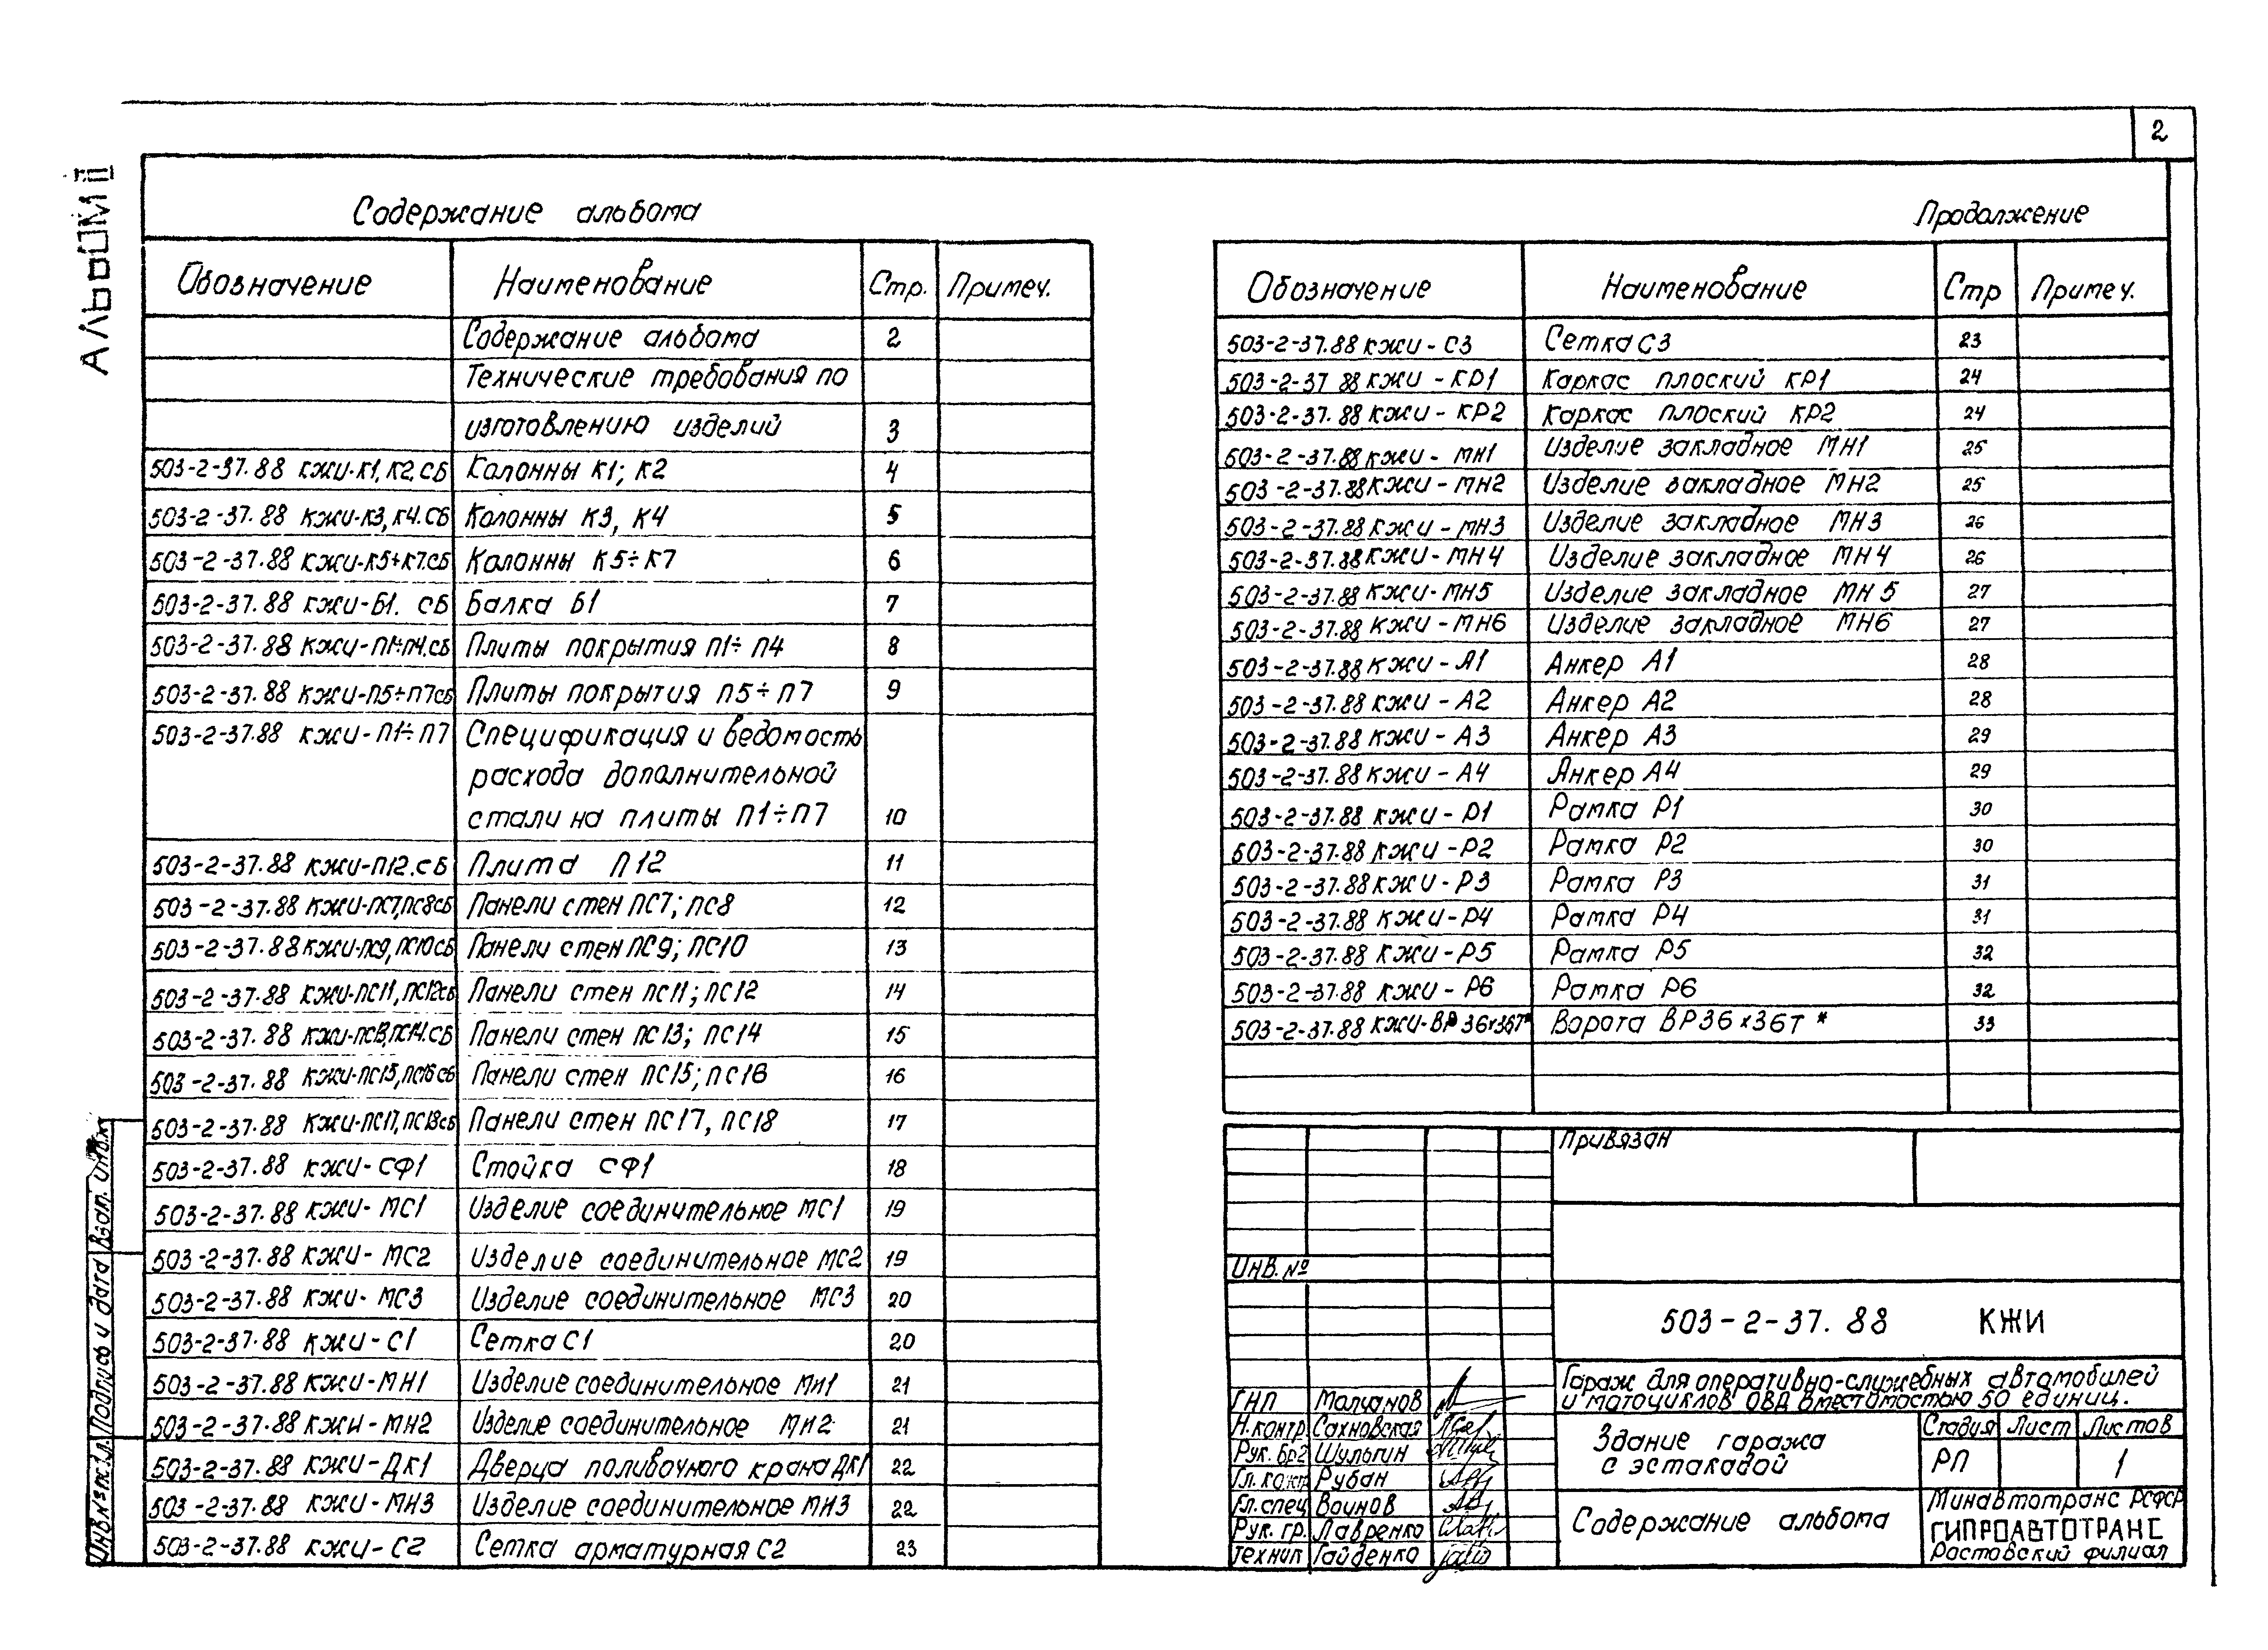 2
Альбом II
Содержание альбома
Обозначение Наименование Стр. Примеч.
Содержание альбома 2
Технические требования по
изготовлению изделий 3
503-2-37.88 КЖИ-К1, К2.СБ Колонны К1; К2 4
503-2-37.88 КЖИ-К3, К4.СБ Колонны К3, К4 5
503-2-37.88 КЖИ-К5÷К7.СБ Колонны К5÷К7 6
503-2-37.88 КЖИ-Б1. СБ Балка Б1 7
503-2-37.88 КЖИ-П1÷П4.СБ Плиты покрытия П1÷П4 8
503-2-37.88 КЖИ-П5÷П7СБ Плиты покрытия П5÷П7 9
503-2-37.88 КЖИ-П1÷П7 Спецификация и ведомость
расхода дополнительной
стали на плиты П1÷П7 10
503-2-37.88 КЖИ-П12.СБ Плита П12 11
503-2-37.88 КЖИ-ПС7,ПС8СБ Панели стен ПС7; ПС8 12
503-2-37.88 КЖИ-ПС9, ПС10СБ Панели стен ПС9; ПС10 13
503-2-37.88 КЖИ-ПС11, ПС12СБ Панели стен ПС11; ПС12 14
503-2-37.88 КЖИ-ПС13,ПС14.СБ Панели стен ПС13; ПС14 15
503-2-37.88 КЖИ-ПС15, ПС16СБ Панели стен ПС15; ПС16 16
503-2-37.88 КЖИ-ПС17, ПС18СБ Панели стен ПС17, ПС18 17
503-2-37.88 КЖИ-СФ1 Стойка СФ1 18
503-2-37.88 КЖИ-МС1 Изделие соединительное МС1 19
503-2-37.88 КЖИ-МС2 Изделие соединительное МС2 19
503-2-37.88 КЖИ-МС3 Изделие соединительное МС3 20
503-2-37.88 КЖИ-С1 Сетка С1 20
503-2-37.88 КЖИ-МН1 Изделие соединительное МИ1 21
503-2-37.88 КЖИ-МН2 Изделие соединительное МИ2 21
503-2-37.88 КЖИ-ДК1 Дверца поливочного крана ДК1 22
503-2-37.88 КЖИ-МН3 Изделие соединительное МИ3 22
503-2-37.88 КЖИ-С2 Сетка арматурная С2 23
Продолжение
Обозначение Наименование Стр Примеч.
503-2-37.88 КЖИ-С3 Сетка С3 23
503-2-37 88 КЖИ-КР1 Каркас плоский КР1 24
503-2-37.88 КЖИ-КР2 Каркас плоский КР2 24
503-2-37.88 КЖИ-МН1 Изделие закладное МН1 25
503-2-37.88 КЖИ-МН2 Изделие закладное МН2 25
503-2-37.88 КЖИ-МН3 Изделие закладное МН3 26
503-2-37.88 КЖИ-МН4 Изделие закладное МН4 26
503-2-37.88 КЖИ-МН5 Изделие закладное МН5 27
503-2-37.88 КЖИ-МН6 Изделие закладное МН6 27
503-2-37.88 КЖИ-А1 Анкер А1 28
503-2-37.88 КЖИ-А2 Анкер А2 28
503-2-37.88 КЖИ-А3 Анкер А3 29
503-2-37.88 КЖИ-А4 Анкер А4 29
503-2-37.88 КЖИ-Р1 Рамка Р1 30
503-2-37.88 КЖИ-Р2 Рамка Р2 30
503-2-37.88 КЖИ-Р3 Рамка Р3 31
503-2-37.88 КЖИ-Р4 Рамка Р4 31
503-2-37.88 КЖИ-Р5 Рамка Р5 32
503-2-37.88 КЖИ-Р6 Рамка Р6 32
503-2-37.88 КЖИ-ВР36х36Т* Ворота ВР36х36Т * 33
Привязан
Инв. №
503-2-37. 88 КЖИ
Гараж для оперативно-служебных автомобилей
и мотоциклов ОВД вместимостью 50 единиц.
ГИП Молчанов
Н.контр. Сахновская
Рук. бр2 Шульгин
Гл. констр Рубан
Гл.спец Воинов
Рук. гр. Лавренко
техник Гайденко
Здание гаража
с эстакадой
Стадия Лист Листов
РП 1
Содержание альбома
Минавтотранс РСФСР
ГИПРОАВТОТРАНС
Ростовский филиал
Инв № подл. Подпись и дата Взам. инв. №